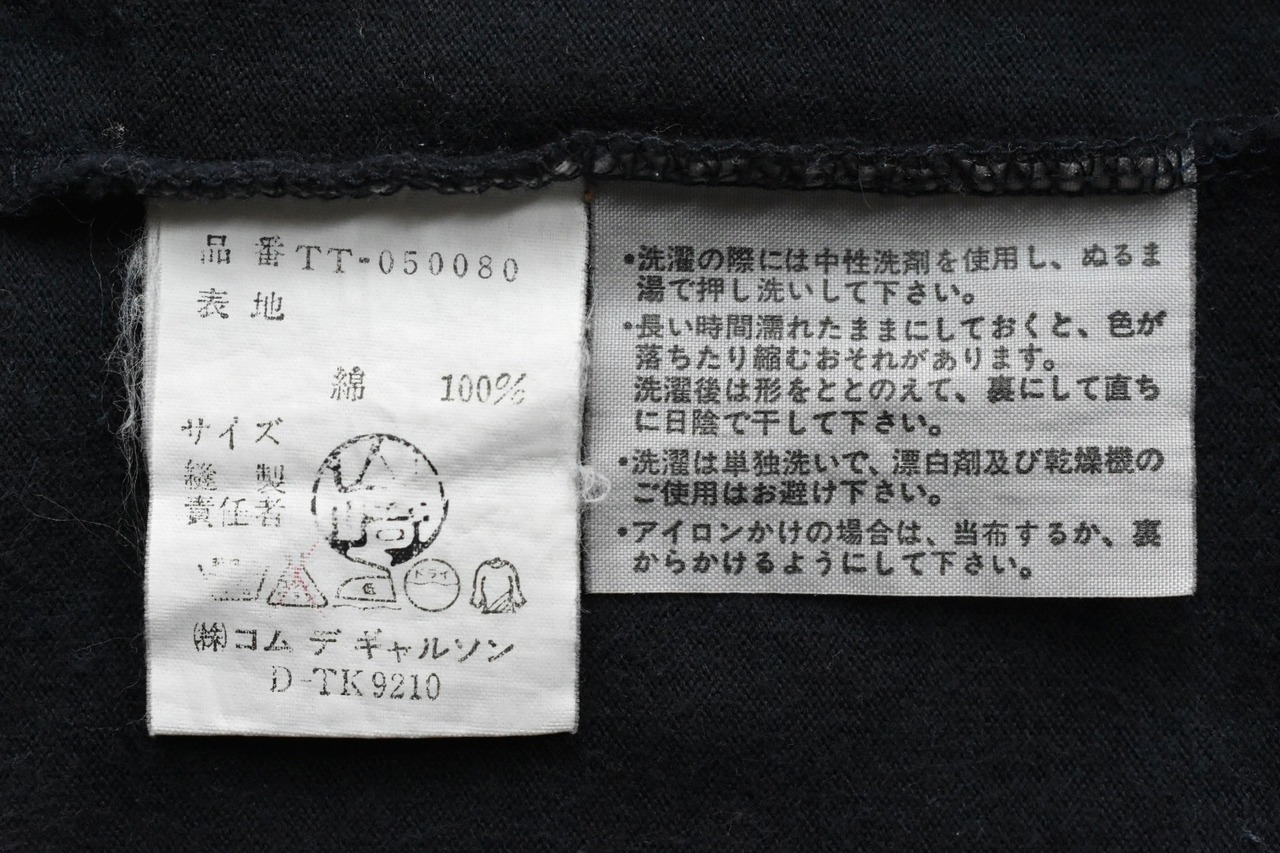 品番TT-050080
表地
綿 100%
サイズ
縫製
責任者
ドライ
㈱コム デ ギャルソン
D-TK9210
•洗濯の際には中性洗剤を使用し、ぬるま
湯で押し洗いして下さい。
•長い時間濡れたままにしておくと、色が
落ちたり縮むおそれがあります。
洗濯後は形をととのえて、裏にして直ち
に日陰で干して下さい。
•洗濯は単独洗いで、漂白剤及び乾燥機の
ご使用はお避け下さい。
•アイロンかけの場合は、当布するか、裏
からかけるようにして下さい。